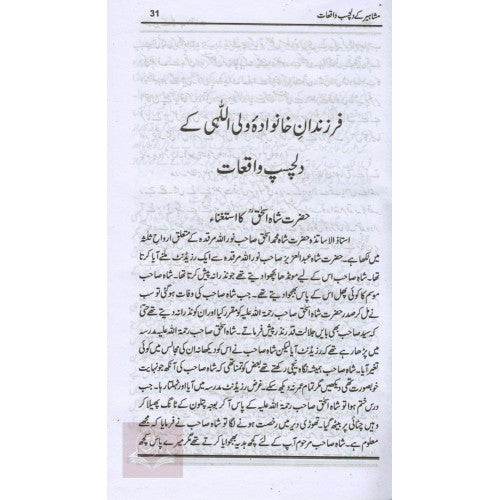 31
مشاہیر کے دلچسپ واقعات
فرزندانِ خانوادۂ ولی اللّٰہی کے
دلچسپ واقعات
حضرت شاہ اسحٰقؒ کا استغناء
استاذ الاساتذہ حضرت شاہ محمد اسحٰق صاحب نور اللہ مرقدہ کے متعلق ارواح ثلثہ
میں لکھا ہے۔ حضرت شاہ عبدالعزیز صاحب نور اللہ مرقدہ سے ایک رزیڈنٹ ملنے آیا کرتا
تھا۔ شاہ صاحب اس کے لیے مونڈھا بچھوا دیتے تھے جو نذرانہ پیش کرتا تھا۔ شاہ صاحب
موسم کا کوئی پھل اس کے پاس بھجوا دیتے تھے۔ جب شاہ صاحب کی وفات ہو گئی تو سب نے
مل کر صدر حضرت شاہ اسحٰق صاحب رحمۃ اللہ علیہ کو مقرر کیا اور ان کو نذرانہ دیتے تھے حتیٰ کہ
سید صاحب بھی بایں جلالت قدر نذر پیش فرماتے۔ شاہ اسحٰق صاحب رحمۃ اللہ علیہ مدرسہ
میں پڑھا رہے تھے کہ رزیڈنٹ آیا لیکن شاہ صاحب نے اس کو دیکھا نہ ان کی مجالس میں کوئی
تغیر آیا۔ شاہ صاحب ہمیشہ نگاہ نیچی رکھتے تھے بعض کو تمنا تھی کہ شاہ صاحب کی آنکھ جو نہایت
خوبصورت تھی دیکھیں مگر تمام عمر نہ دیکھ سکے۔ غرض رزیڈنٹ مدرسہ میں آیا اور ٹہلتا رہا۔ جب
درس ختم ہوا تو شاہ اسحٰق صاحب رحمۃ اللہ علیہ کے پاس آ کر بوجہ پتلون کے ٹانگ پھیلا کر
وہیں چٹائی پر بیٹھ گیا۔ تھوڑی دیر میں رخصت ہونے لگا تو شاہ صاحب نے فرمایا کہ مجھے
معلوم ہے۔ شاہ صاحب مرحوم آپ کے لئے کچھ ہدیہ بھجوایا کرتے تھے مگر میرے پاس کچھ